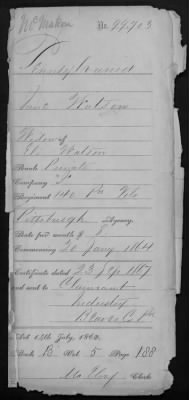 McMahon
No. 99,703
Pennsylvania
Jane Watson
Widow of
Watson
Rank Private
Company
Regiment 140 Pa Vols
Pittsburgh Agency.
Rate per month $ 8
Commencing 20 Jany 1864
Certificate dated 23 Sep 1867
and sent to Claimant
Industry
Beaver Co. Pa
Act 14th July, 1862.
Book B Vol. 5 Page 188
Clerk